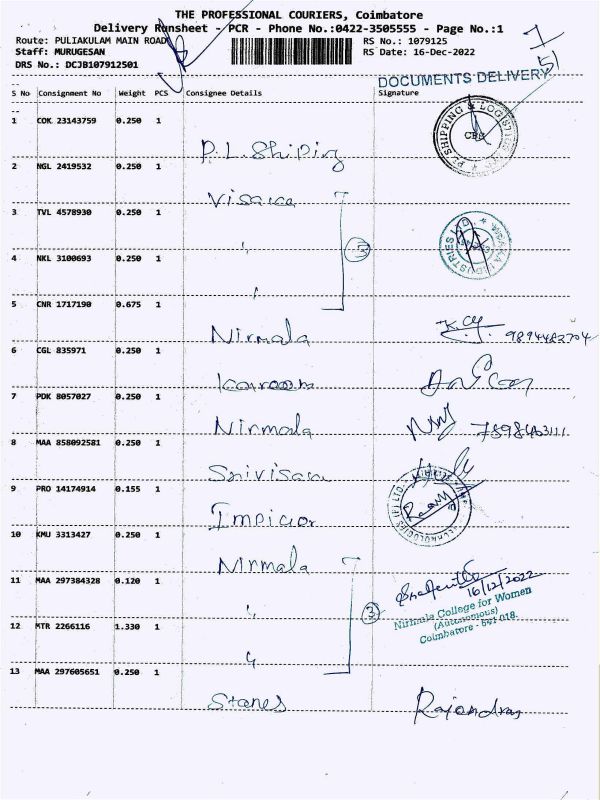 THE PROFESSIONAL COURIERS, Coimbatore
Delivery Runsheet - PCR - Phone No.:0422-3505555 - Page No.:1
Route: PULIAKULAM MAIN ROAD RS No.: 1079125
Staff: MURUGESAN RS Date: 16-Dec-2022
DRS No.: DCJB107912501
DOCUMENTS DELIVERY
S No Consignment No Weight PCS Consignee Details Signature
1 COK 23143759 0.250 1
P.L. Shiping
2 NGL 2419532 0.250 1
3 TVL 4578930 0.250 1
"
4 NKL 3100693 0.250 1
5 CNR 1717190 0.675 1
Nirmala 9894482704
6 CGL 835971 0.250 1
7 PDK 8057027 0.250 1
Nirmala
8 MAA 858092581 0.250 1
9 PRO 14174914 0.155 1
10 KMU 3313427 0.250 1
Nirmala
11 MAA 297384328 0.120 1
16/12/2022
Nirmala College for Women
(Autonomous)
Coimbatore - 641 018.
3
12 MTR 2266116 1.330 1
13 MAA 297605651 0.250 1
Stanes Rajendran